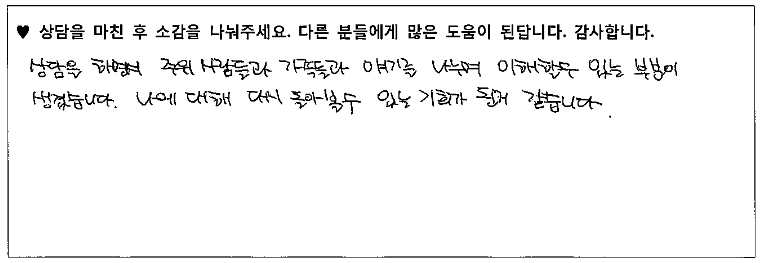 ♥ 상담을 마친 후 소감을 나눠주세요. 다른 분들에게 많은 도움이 된답니다. 감사합니다.
상담을 하면서 주위 사람들과 가족들과 얘기를 나누며 이해할수 있는 부분이
생겼습니다. 나에 대해 다시 돌아볼수 있는 기회가 된거 같습니다.